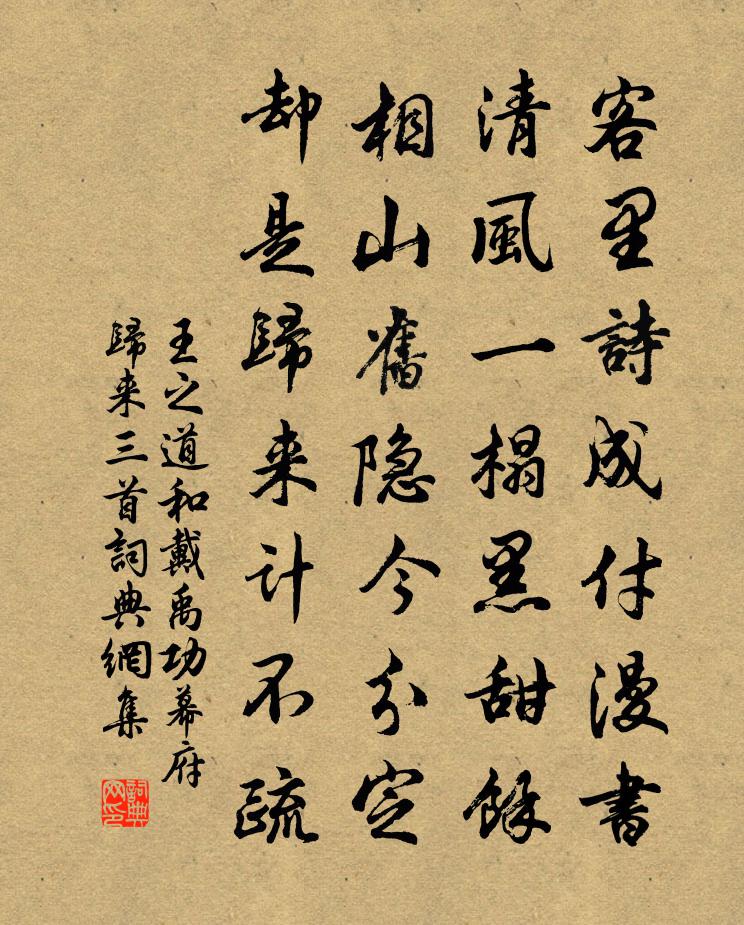 客里詩成付漫書
清風一榻黑甜餘
相山舊隐今分定
却是歸来计不疏
王之道和戴禹功幕府
歸来三首詞典網集
詞典
网印